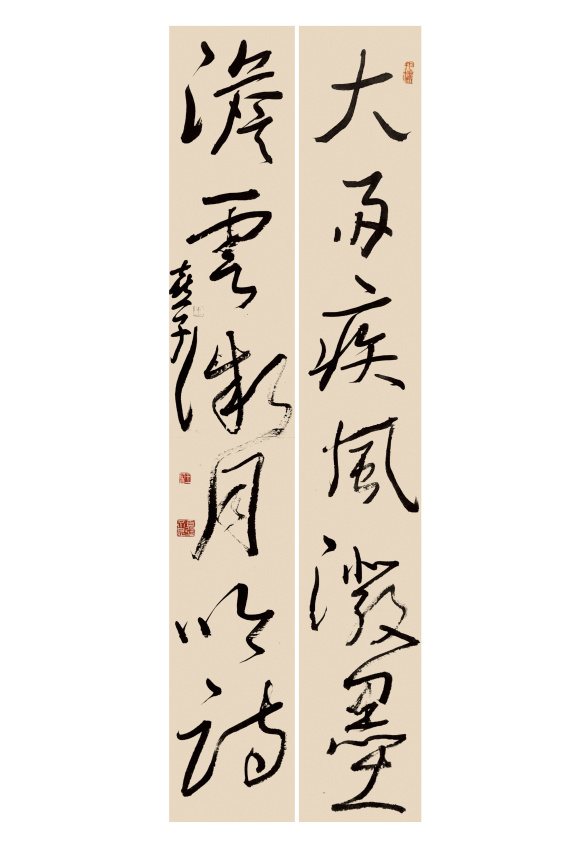 大雨疾風潑墨
澹雲微月吟詩